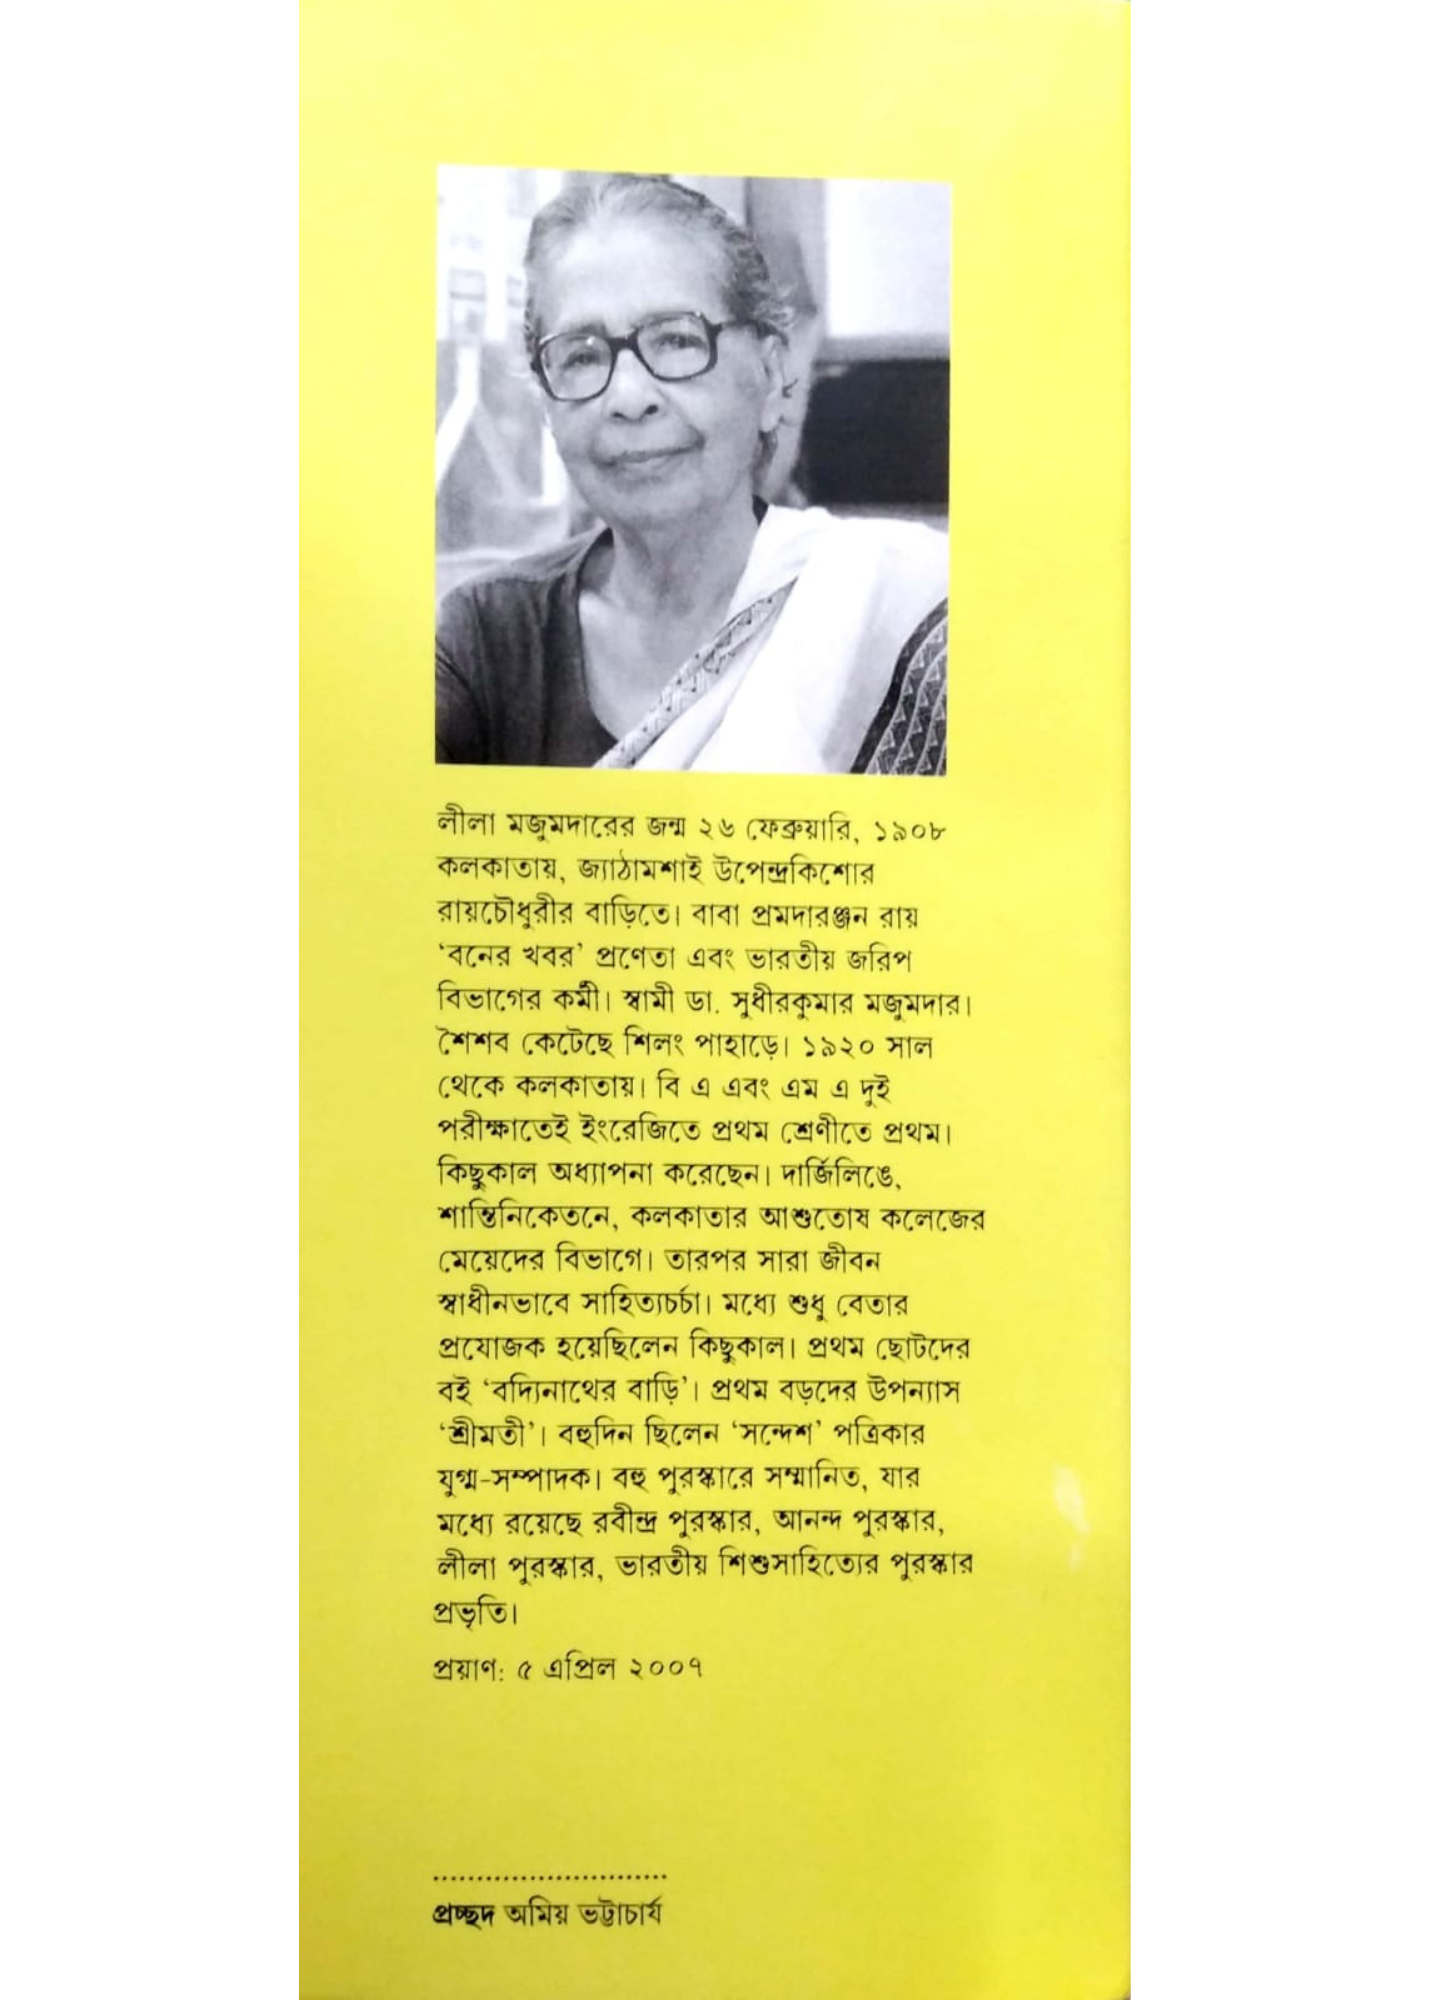 লীলা মজুমদারের জন্ম ২৬ ফেব্রুয়ারি, ১৯০৮
কলকাতায়, জ্যাঠামশাই উপেন্দ্রকিশোর
রায়চৌধুরীর বাড়িতে। বাবা প্রমদারঞ্জন রায়
‘বনের খবর’ প্রণেতা এবং ভারতীয় জরিপ
বিভাগের কর্মী। স্বামী ডা. সুধীরকুমার মজুমদার।
শৈশব কেটেছে শিলং পাহাড়ে। ১৯২০ সাল
থেকে কলকাতায়। বি এ এবং এম এ দুই
পরীক্ষাতেই ইংরেজিতে প্রথম শ্রেণীতে প্রথম।
কিছুকাল অধ্যাপনা করেছেন। দার্জিলিঙে,
শান্তিনিকেতনে, কলকাতার আশুতোষ কলেজের
মেয়েদের বিভাগে। তারপর সারা জীবন
স্বাধীনভাবে সাহিত্যচর্চা। মধ্যে শুধু বেতার
প্রযোজক হয়েছিলেন কিছুকাল। প্রথম ছোটদের
বই ‘বদ্যিনাথের বাড়ি’। প্রথম বড়দের উপন্যাস
‘শ্রীমতী’। বহুদিন ছিলেন ‘সন্দেশ’ পত্রিকার
যুগ্ম-সম্পাদক। বহু পুরস্কারে সম্মানিত, যার
মধ্যে রয়েছে রবীন্দ্র পুরস্কার, আনন্দ পুরস্কার,
লীলা পুরস্কার, ভারতীয় শিশুসাহিত্যের পুরস্কার
প্রভৃতি।
প্রয়াণ: ৫ এপ্রিল ২০০৭
...........................
প্রচ্ছদ অমিয় ভট্টাচার্য